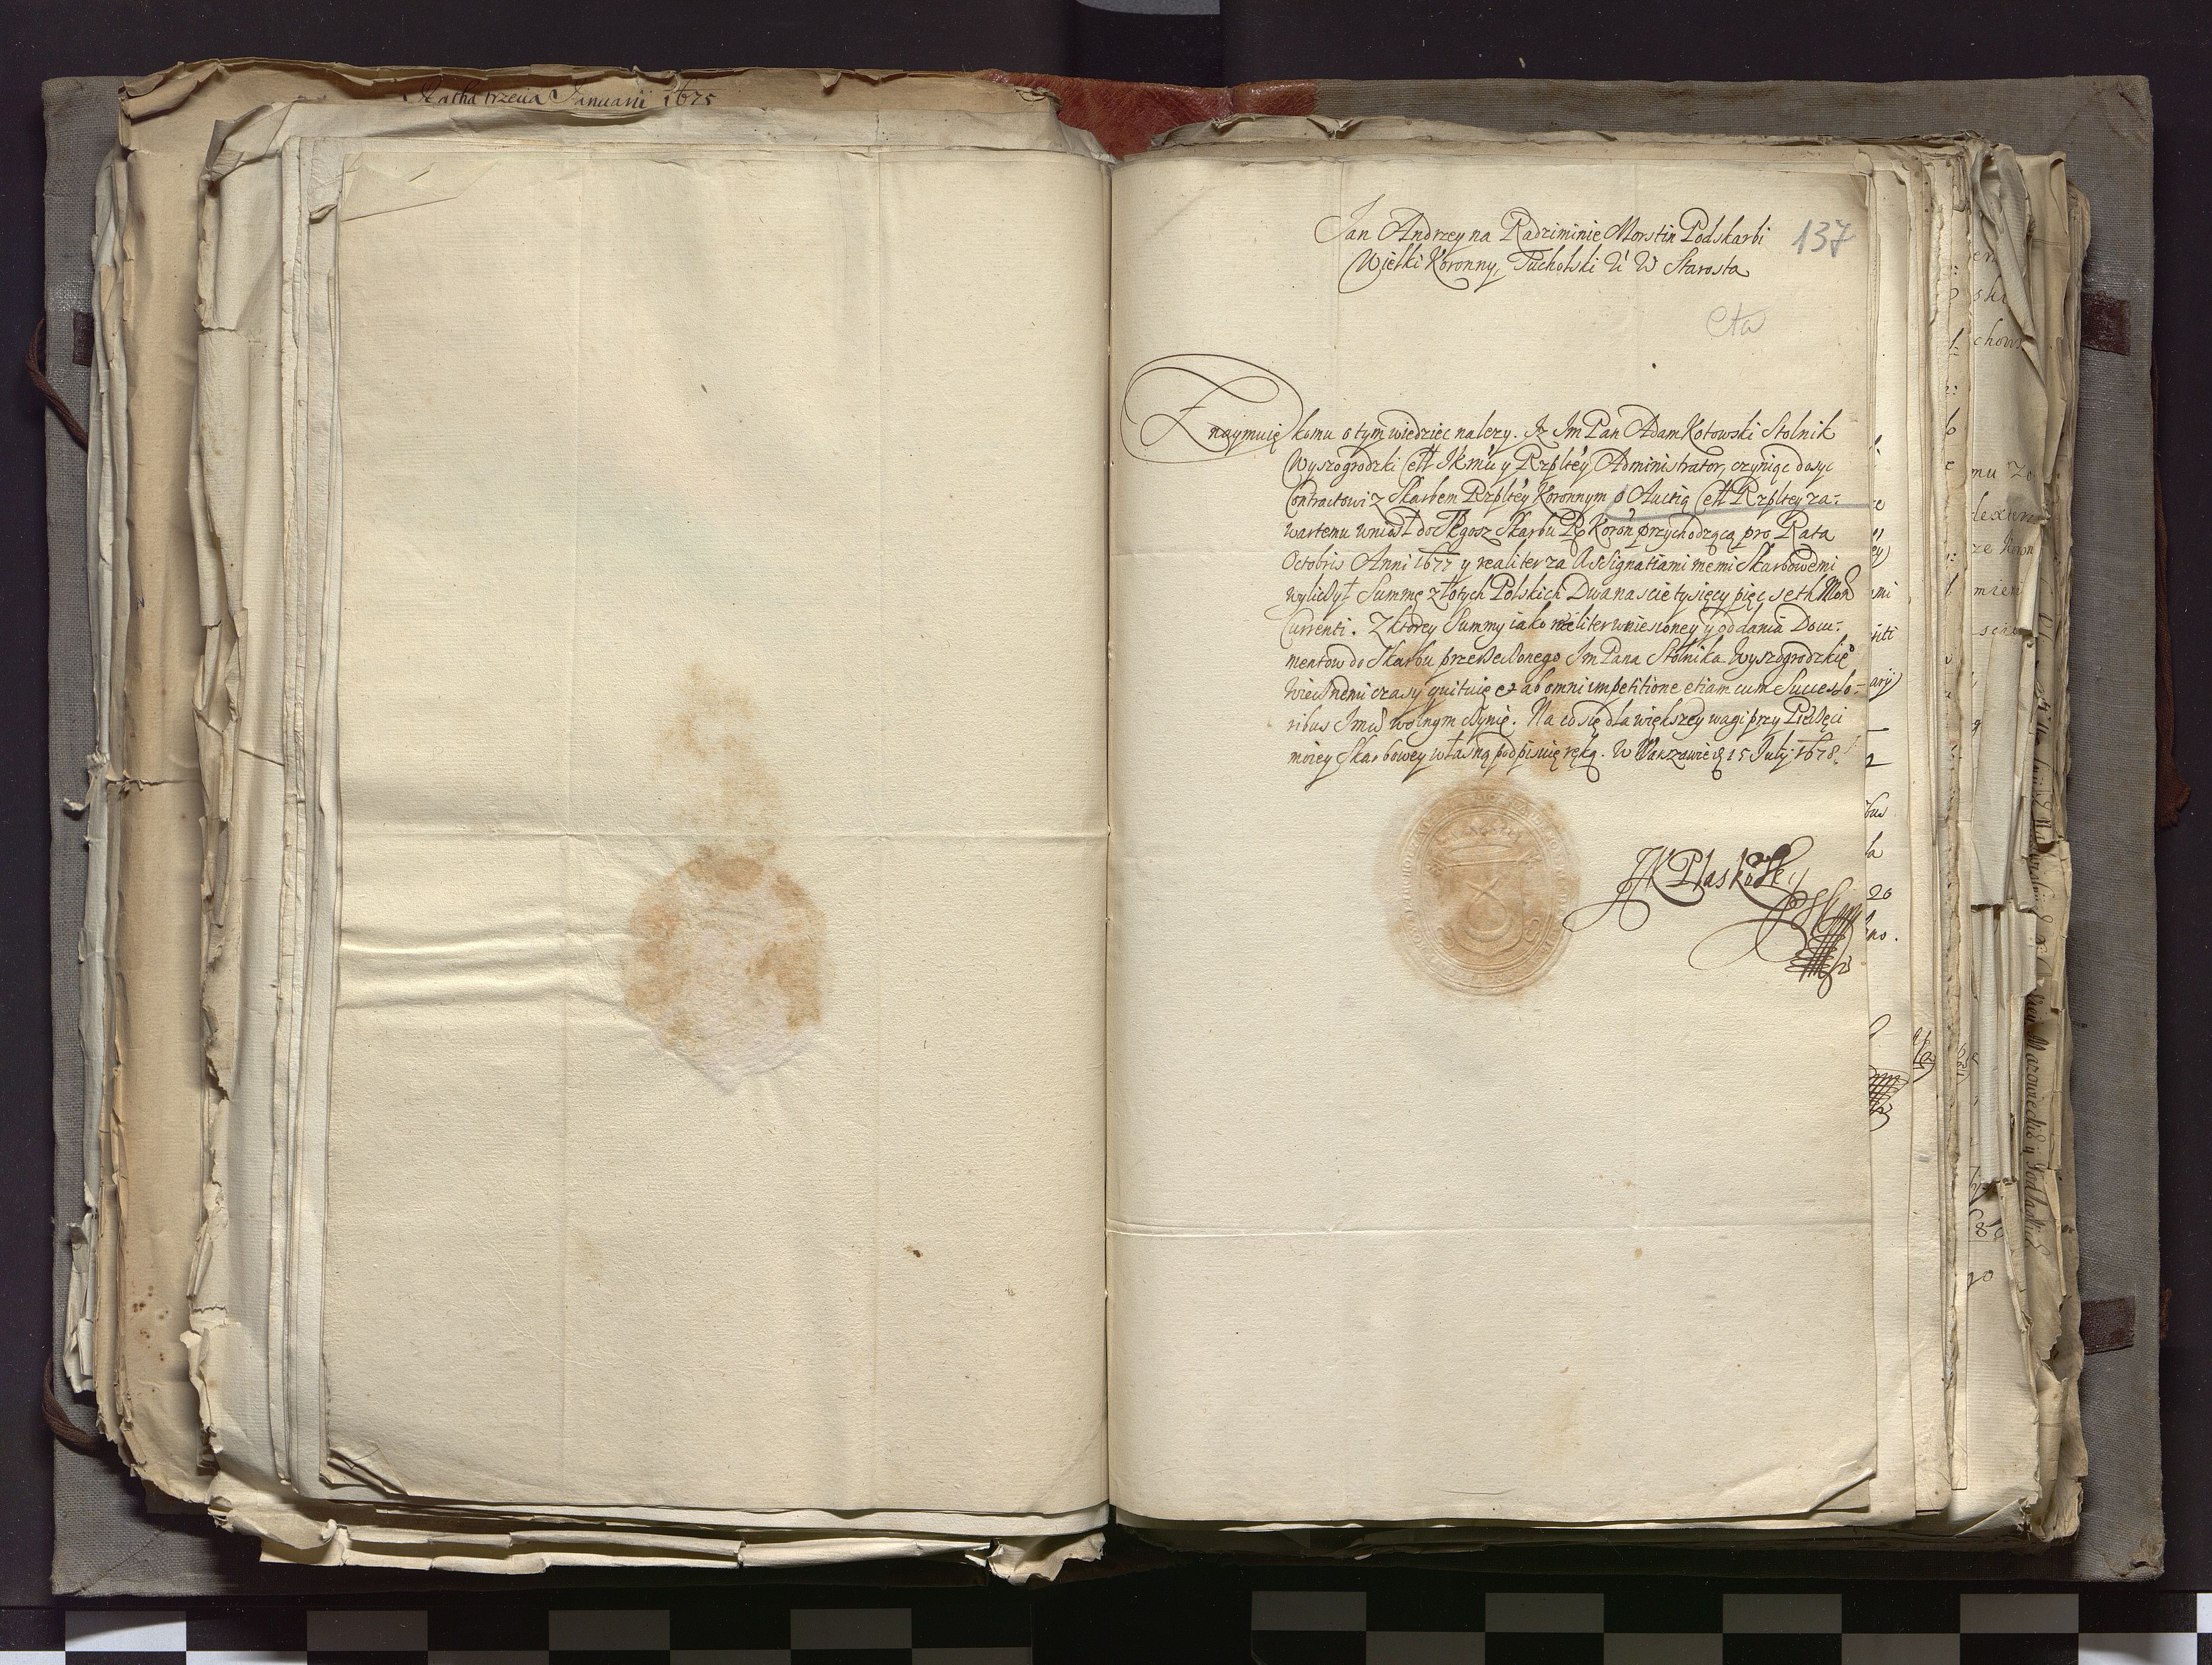 Ratha trzecia Januarii 1675
Jan Andrzey na Radziminie Morstin Podskarbi
137
Wielki Koronny, Tucholski &c &c Starosta
Cła
Znaymuię komu o tym wiedziec nalezy. Iz Im Pan Adam Kotowski Stolnik
Wyszogrodzki Cełł Ikmći y Rzpltey Administrator, czyniąc dosyc
Contractowi z Skarbem Rzpltey Koronnym o Auctią Cełł Rzpltey za-
wartemu wniosł do Skarbu Rp Koron przychodzącą pro Rata
Octobris Anni 1677 y realiter za Assignatiami memi Skarbowemi
wyliczył Summę złotych Polskich Dwanascie tysięcy pięc seth Mon
Currenti. Z ktorey Summy iako realiter wniesioney y oddania Docu-
mentow do Skarbu przerzeczonego Im Pana Stolnika Wyszogrodzkieo
Wiecznemi czasy quituię et ab omni impetitione etiam cum Successo-
ribus Imći wolnym czynię. Na co się dla większey wagi przy Pieczęci
moiey Skarbowey własną podpisuię ręką. W Warszawie d 15 July 1678